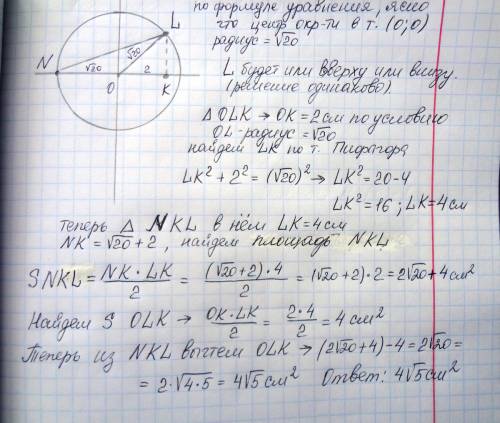 по формуле уравнения, ясно
что центр окр-ти в т. (0;0)
радиус = √20
L
N
√20
√20
2
O
K
L будет или вверху или внизу.
(решение одинаково).
△ OLK → OK = 2 см по условию
OL - радиус = √20
найдем LK по т. Пифагора
LK² + 2² = (√20)² → LK² = 20-4
LK² = 16 ; LK = 4 см
теперь △ NKL в нём LK = 4 см
NK = √20 + 2 , найдем площадь NKL
S NKL = NK · LK / 2 = (√20+2) · 4 / 2 = (√20+2) · 2 = 2√20 + 4 см²
Найдем S OLK → OK · LK / 2 = 2 · 4 / 2 = 4 см²
Теперь из NKL вычтем OLK → (2√20+4) - 4 = 2√20 =
= 2 · √4·5 = 4√5 см² Ответ: 4√5 см²